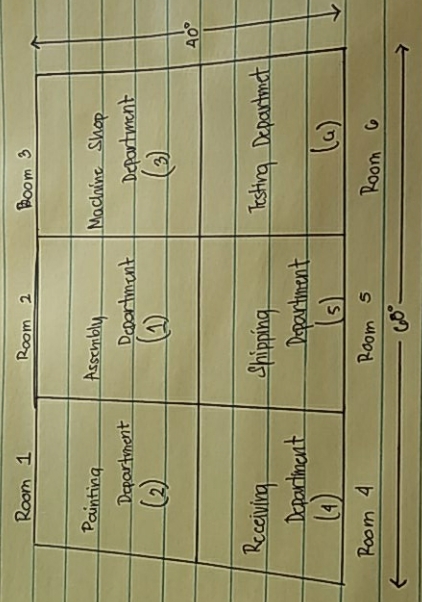 Room 1
Room 2
Room 3
Painting
Department
(2)
Assembly
Department
(1)
Machine Shop
Department
(3)
40°
Receiving
Department
(4)
Shipping
Department
(5)
Testing Departmet
(6)
Room 4
Room 5
Room 6
60°